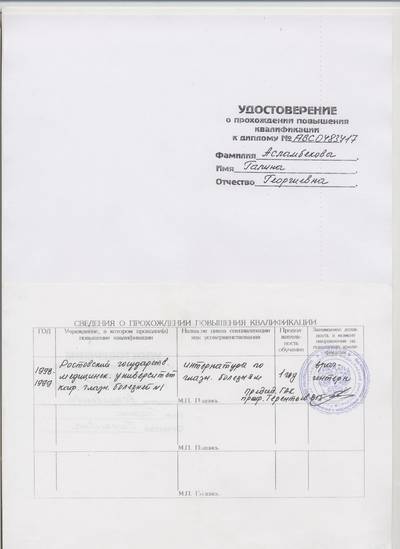 УДОСТОВЕРЕНИЕ
о прохождении повышения
квалификации
к диплому № АВС 0483417
Фамилия Асламбекова
Имя Галина
Отчество Георгиевна
СВЕДЕНИЯ О ПРОХОЖДЕНИИ ПОВЫШЕНИЯ КВАЛИФИКАЦИИ
ГОД
Учреждение, в котором проходил(а)
повышение квалификации
Название цикла специализации
или усовершенствования
Продол
житель-
ность
обучения
Занимаемая долж-
ность в момент
направления на
повышение квали-
фикации
1998-
1999
Ростовский государств.
медицинск. университет
каф. глазн. болезней №1
интернатура по
глазн. болезням
1 год
врач-
интерн
предсд. ГАК
М.П. Подпись
проф. Терентьев
М.П. Подпись
М.П. Подпись